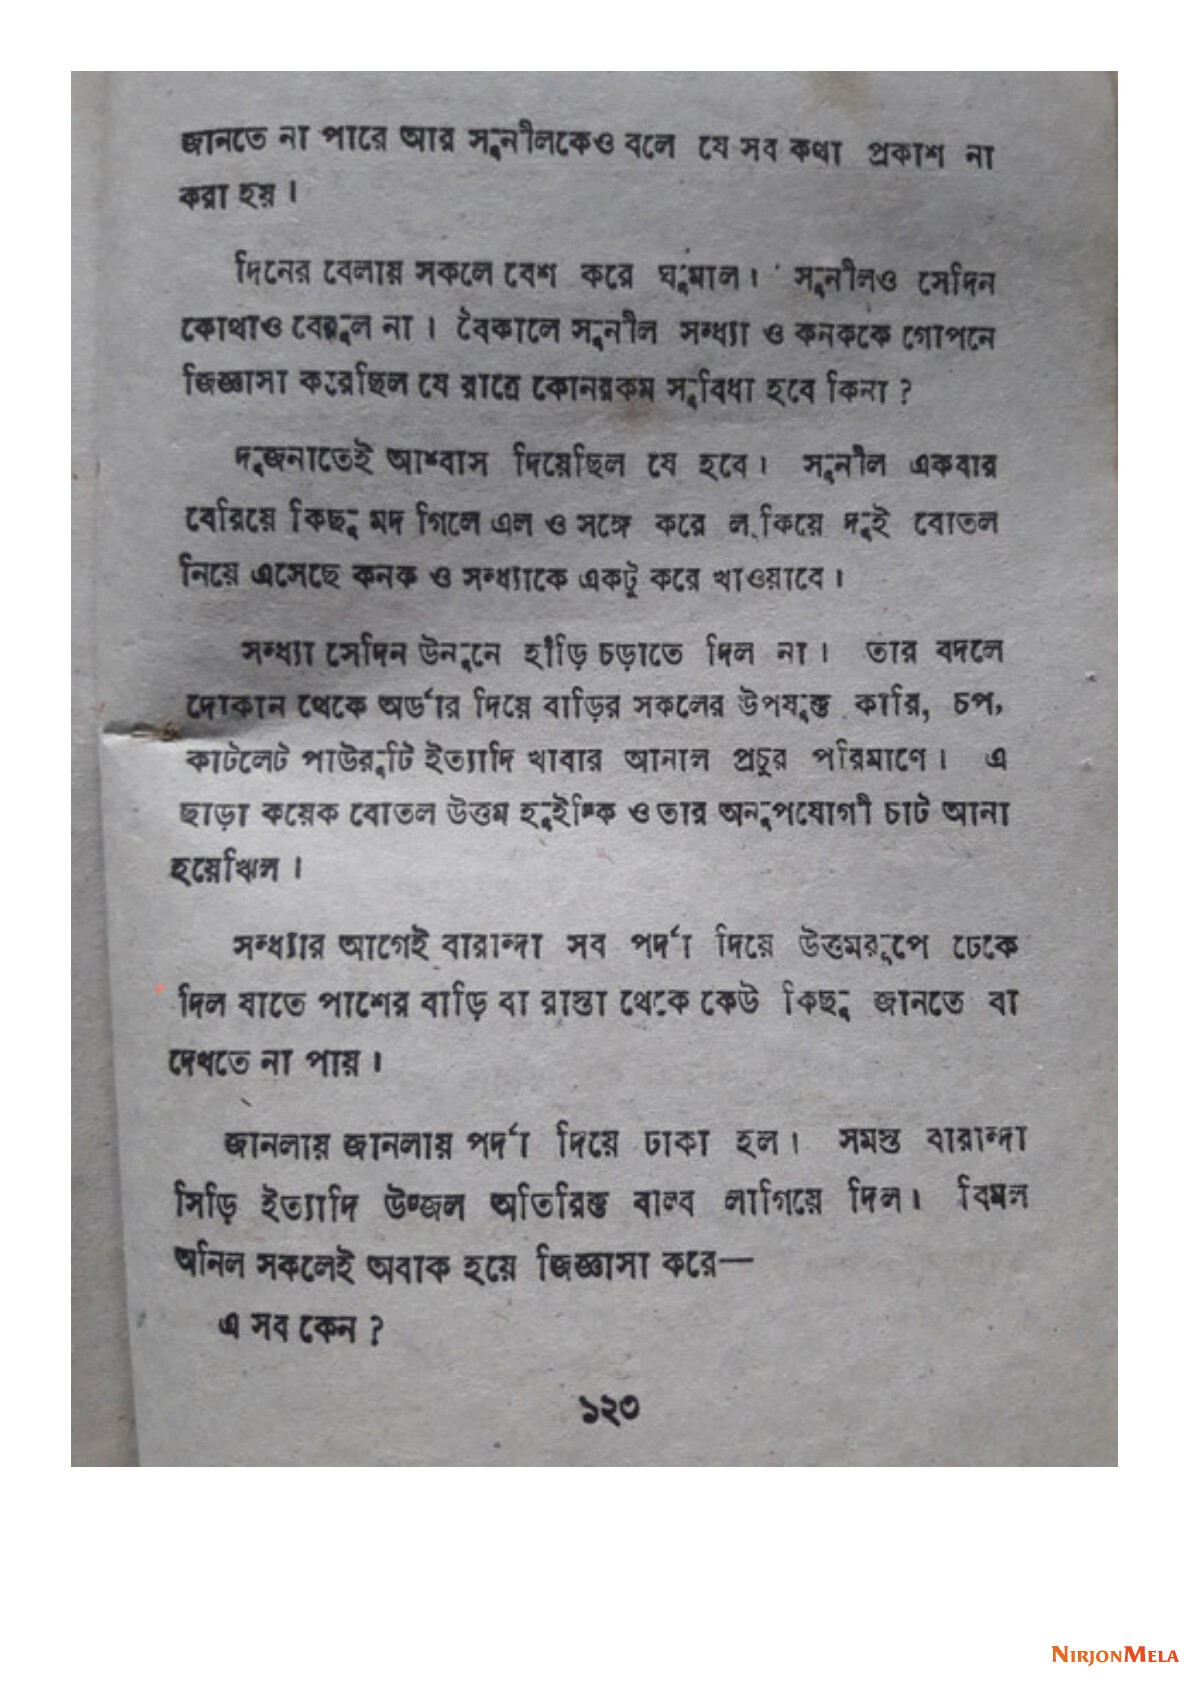 জানতে না পারে আর সুনীলকেও বলে যে সব কথা প্রকাশ না
করা হয়।
দিনের বেলায় সকলে বেশ করে ঘুমাল। সুনীলও সেদিন
কোথাও বেরুল না। বৈকালে সুনীল সন্ধ্যা ও কনককে গোপনে
জিজ্ঞাসা করেছিল যে রাত্রে কোনরকম সুবিধা হবে কিনা?
দুজনাতেই আশ্বাস দিয়েছিল যে হবে। সুনীল একবার
বেরিয়ে কিছু মদ গিলে এল ও সঙ্গে করে লুকিয়ে দুই বোতল
নিয়ে এসেছে কনক ও সন্ধ্যাকে একটু করে খাওয়াবে।
সন্ধ্যা সেদিন উনুনে হাঁড়ি চড়াতে দিল না। তার বদলে
দোকান থেকে অর্ডার দিয়ে বাড়ির সকলের উপযুক্ত কারি, চপ,
কাটলেট পাউরুটি ইত্যাদি খাবার আনাল প্রচুর পরিমাণে। এ
ছাড়া কয়েক বোতল উত্তম হুইস্কি ও তার অনুপযোগী চাট আনা
হয়েঝিল।
সন্ধ্যার আগেই বারান্দা সব পর্দা দিয়ে উত্তমরূপে ঢেকে
দিল যাতে পাশের বাড়ি বা রাস্তা থেকে কেউ কিছু জানতে বা
দেখতে না পায়।
জানলায় জানলায় পর্দা দিয়ে ঢাকা হল। সমস্ত বারান্দা
সিঁড়ি ইত্যাদি উজ্জল অতিরিক্ত বাল্ব লাগিয়ে দিল। বিমল
অনিল সকলেই অবাক হয়ে জিজ্ঞাসা করে—
এ সব কেন?
১২৩
NIRJONMELA